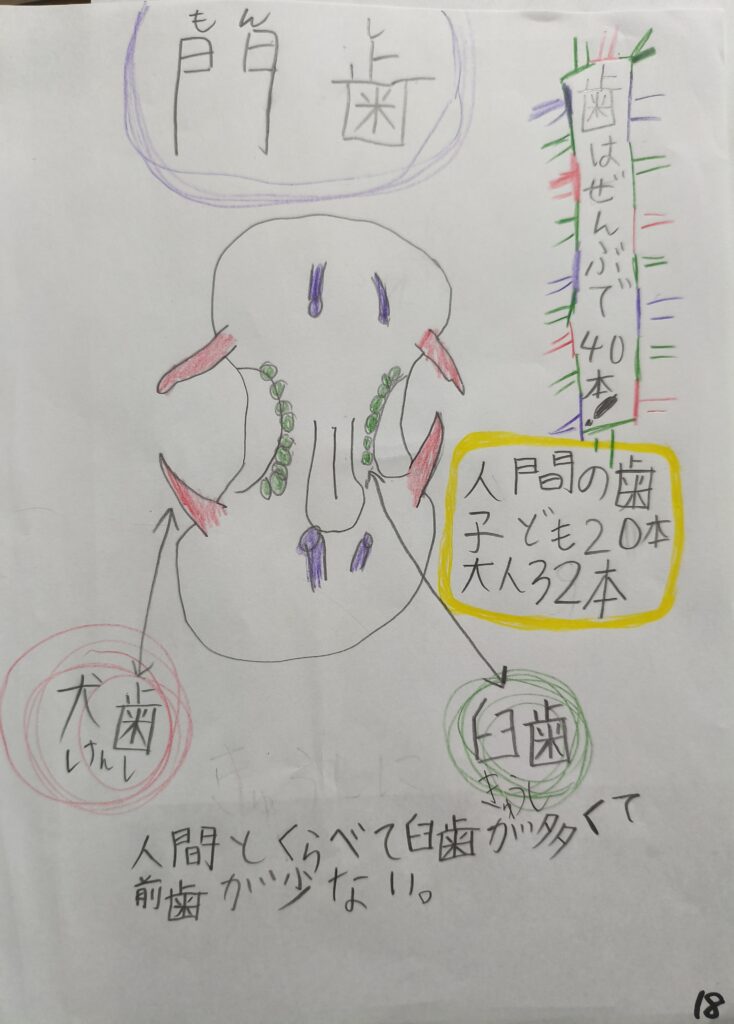 もん し
門歯
歯はぜんぶで40本!
人間の歯
子ども20本
大人32本
犬歯
けんし
臼歯
きゅうし
人間とくらべて臼歯が多くて
前歯が少ない。
18